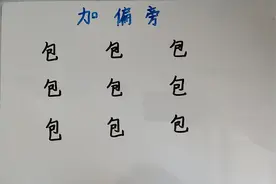 加偏旁
包 包 包
包 包 包
包 包 包